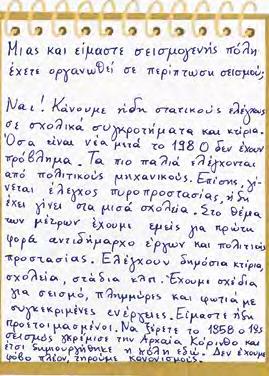 Μιας και είμαστε σεισμογενής πόλη
έχετε οργανωθεί σε περίπτωση σεισμού;
Ναι! Κάνουμε ήδη στατικούς ελέγχους
σε σχολικά συγκροτήματα και κτίρια.
Όσα είναι νέα μετά το 1980 δεν έχουν
πρόβλημα. Τα πιο παλιά ελέγχονται
από πολιτικούς μηχανικούς. Επίσης, γί-
νεται έλεγχος πυροπροστασίας, ήδη
έχει γίνει στα μισά σχολεία. Στο θέμα
των μέτρων έχουμε εμείς για πρώτη
φορά αντιδήμαρχο έργων και πολιτικής
προστασίας. Ελέγχουν δημόσια κτίρια,
σχολεία, στάδια κλπ. Έχουμε σχέδια
για σεισμό, πλημμύρες και φωτιά με
συγκεκριμένες ενέργειες. Είμαστε ήδη
προετοιμασμένοι. Να ξέρετε το 1858 ο
σεισμός γκρέμισε την Αρχαία Κόρινθο και
έτσι δημιουργήθηκε η πόλη εδώ. Δεν έχουμε
φόβο πλέον, τηρούμε κανονισμούς.